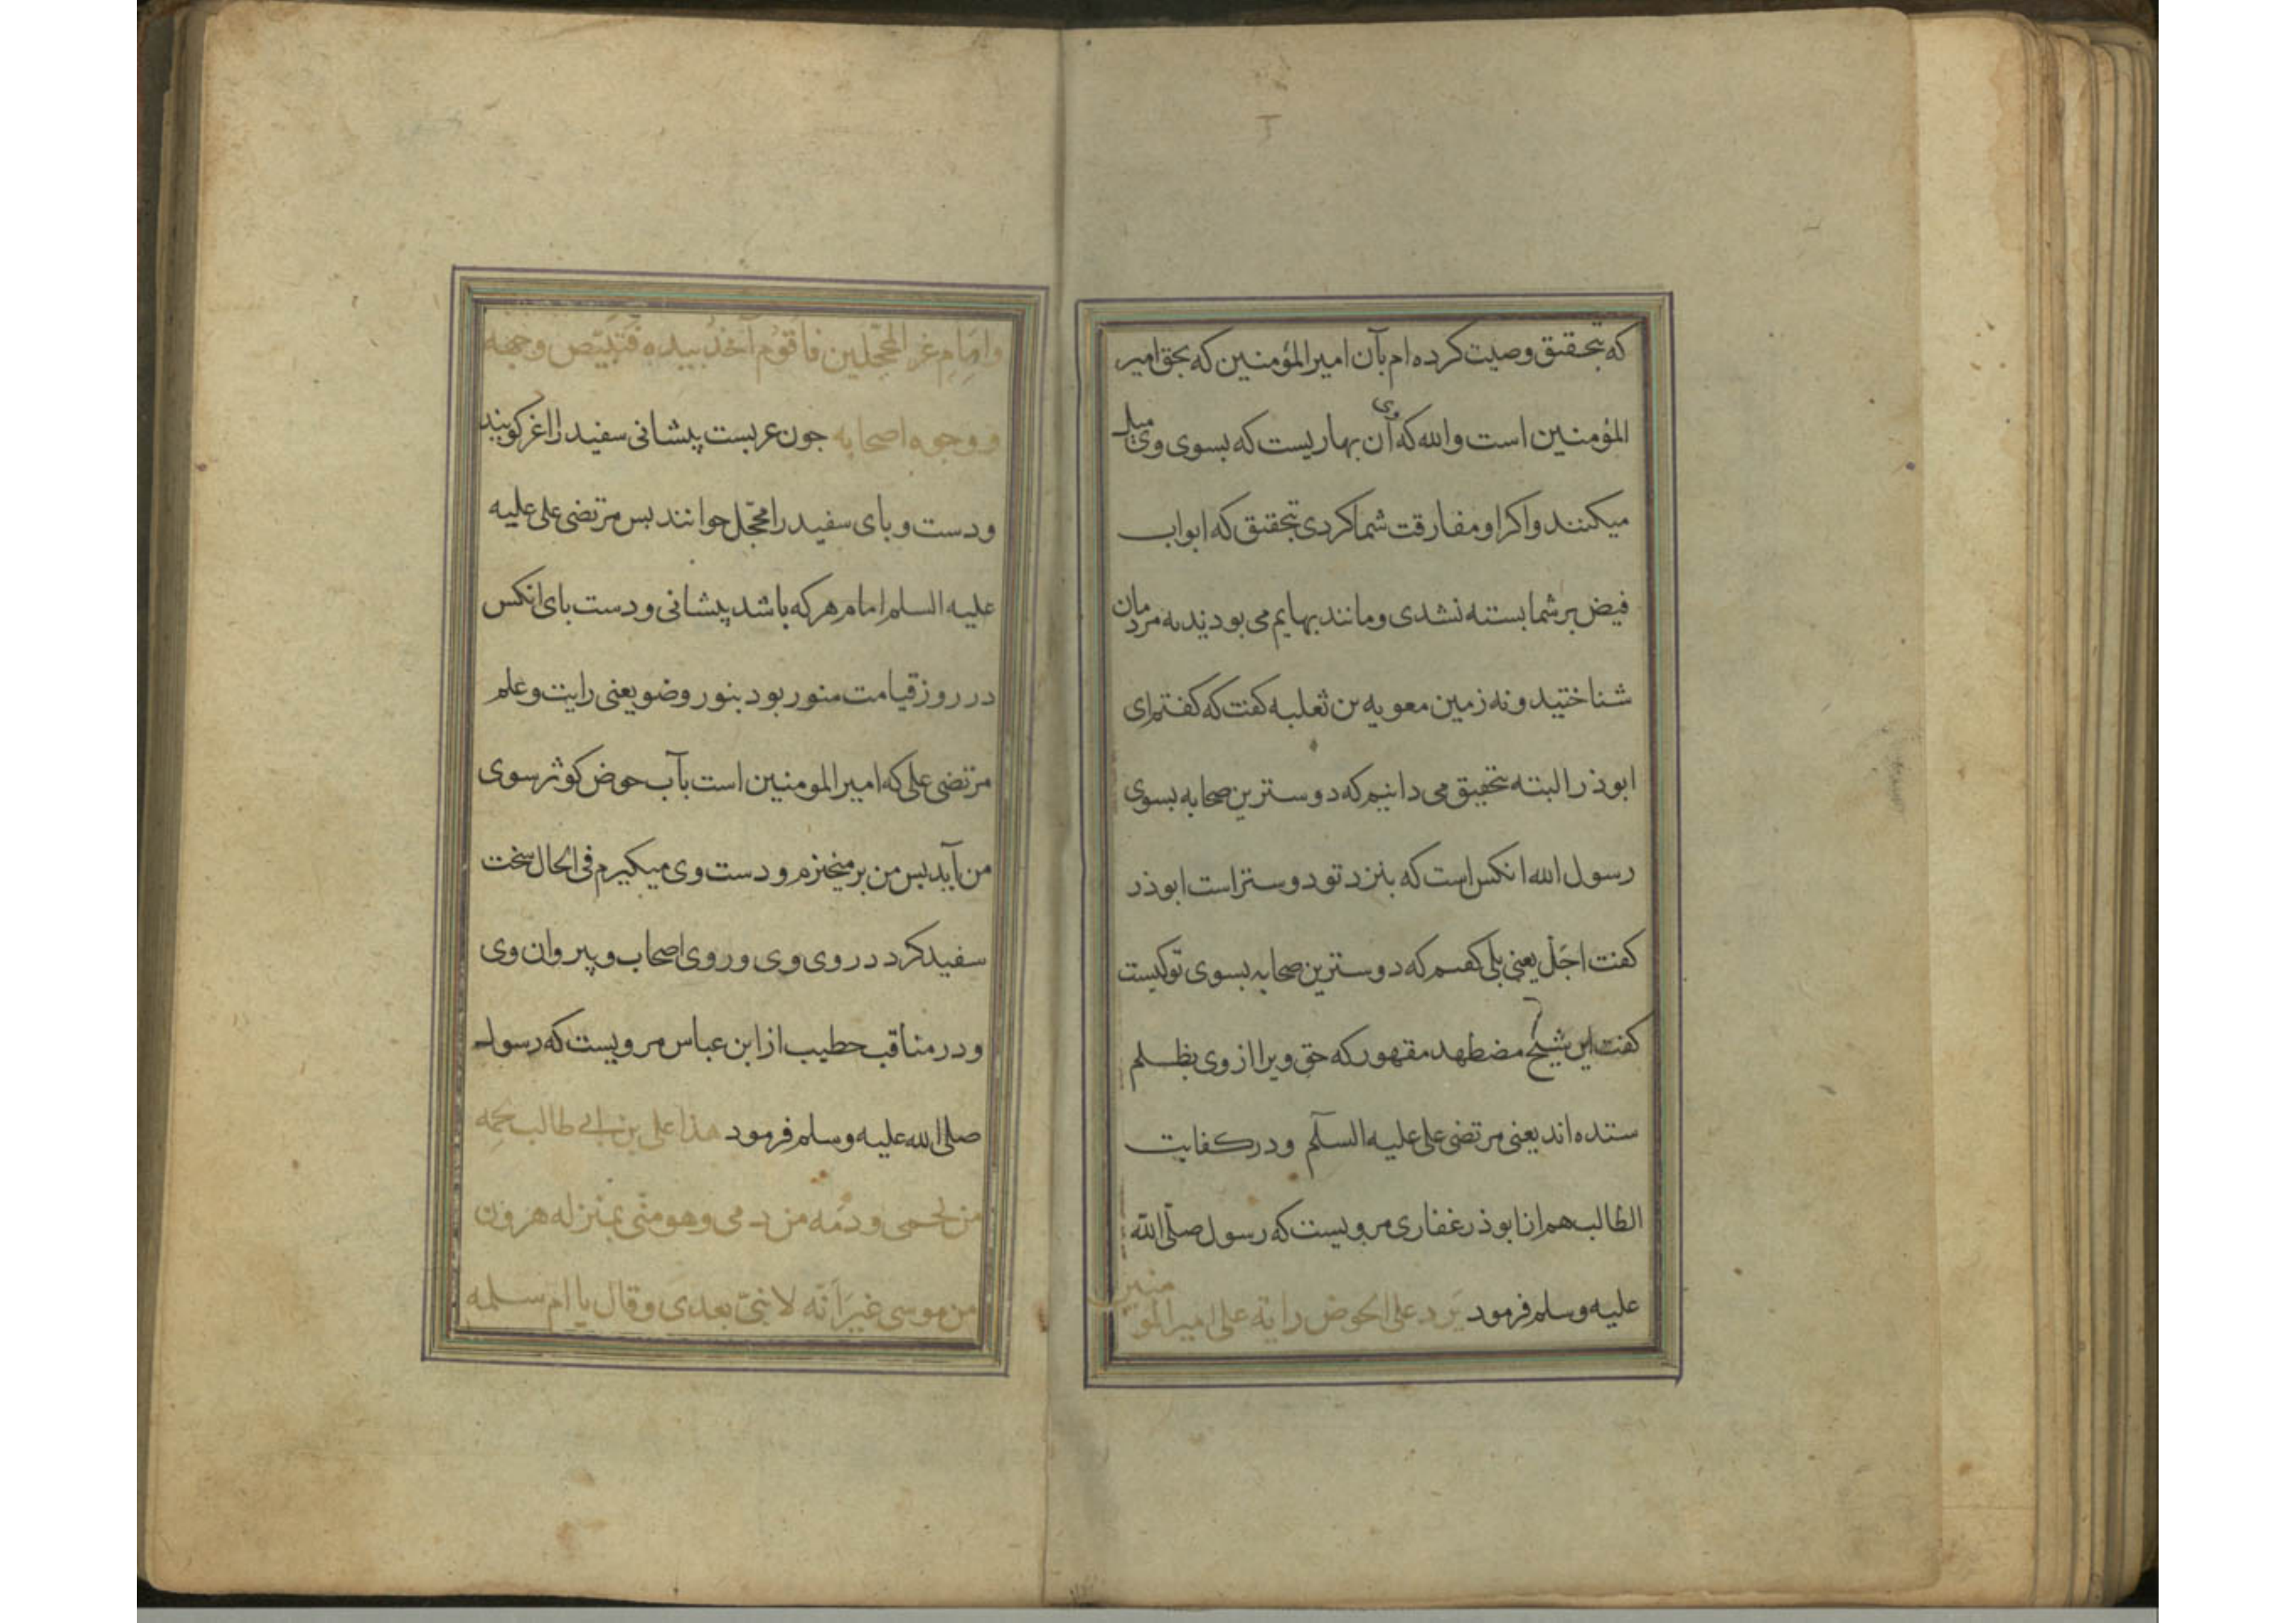 که بتحقیق وصیت کرده ام بآن امیر المؤمنین که بحق امیر
المؤمنین است والله که وی آن بهاریست که بسوی وی میل
میکنند و اکر او مفارقت شما کردی بتحقیق که ابواب
فیض بر شما بسته شدی و مانند بهایم می بودید نه مردمان
شناختید و نه زمین معویه بن ثعلبه کفت که کفتم ای
ابوذر البته بتحقیق می دانیم که دوسترین صحابه بسوی
رسول الله انکس است که بنزد تو دوستر است ابوذر
کفت اجل یعنی بلی کفتم که دوسترین صحابه بسوی تو کیست
کفت این شیخ مضطهد مقهور که حق ویرا از وی بظلم
ستده اند یعنی مرتضی علی علیه السلم و در کفایت
الطالب هم از ابوذر غفاری مرویست که رسول صلی الله
علیه وسلم فرمود یرد علی الحوض رایة علی امیر المومنین
وامام غر المحجلین فاقوم آخذ بیده فتبیض وجهه
و وجوه اصحابه جون عربست پیشانی سفید را اغر کویند
و دست و بای سفید را محجل خوانند بس مرتضی علی علیه
علیه السلم امام هر که باشد پیشانی و دست بای انکس
در روز قیامت منور بود بنور وضو یعنی رایت و علم
مرتضی علی که امیر المومنین است بآب حوض کوثر سوی
من آید بس من بر میخیزم و دست وی میکیرم فی الحال سخت
سفید کردد روی وی و روی اصحاب و پیروان وی
و در مناقب خطیب از ابن عباس مرویست که رسول
صلی الله علیه وسلم فرمود هذا علی بن ابی طالب لحمه
من لحمی و دمه من دمی و هو منی بمنزله هرون
من موسی غیر انه لا نبی بعدی و قال یا ام سلمه